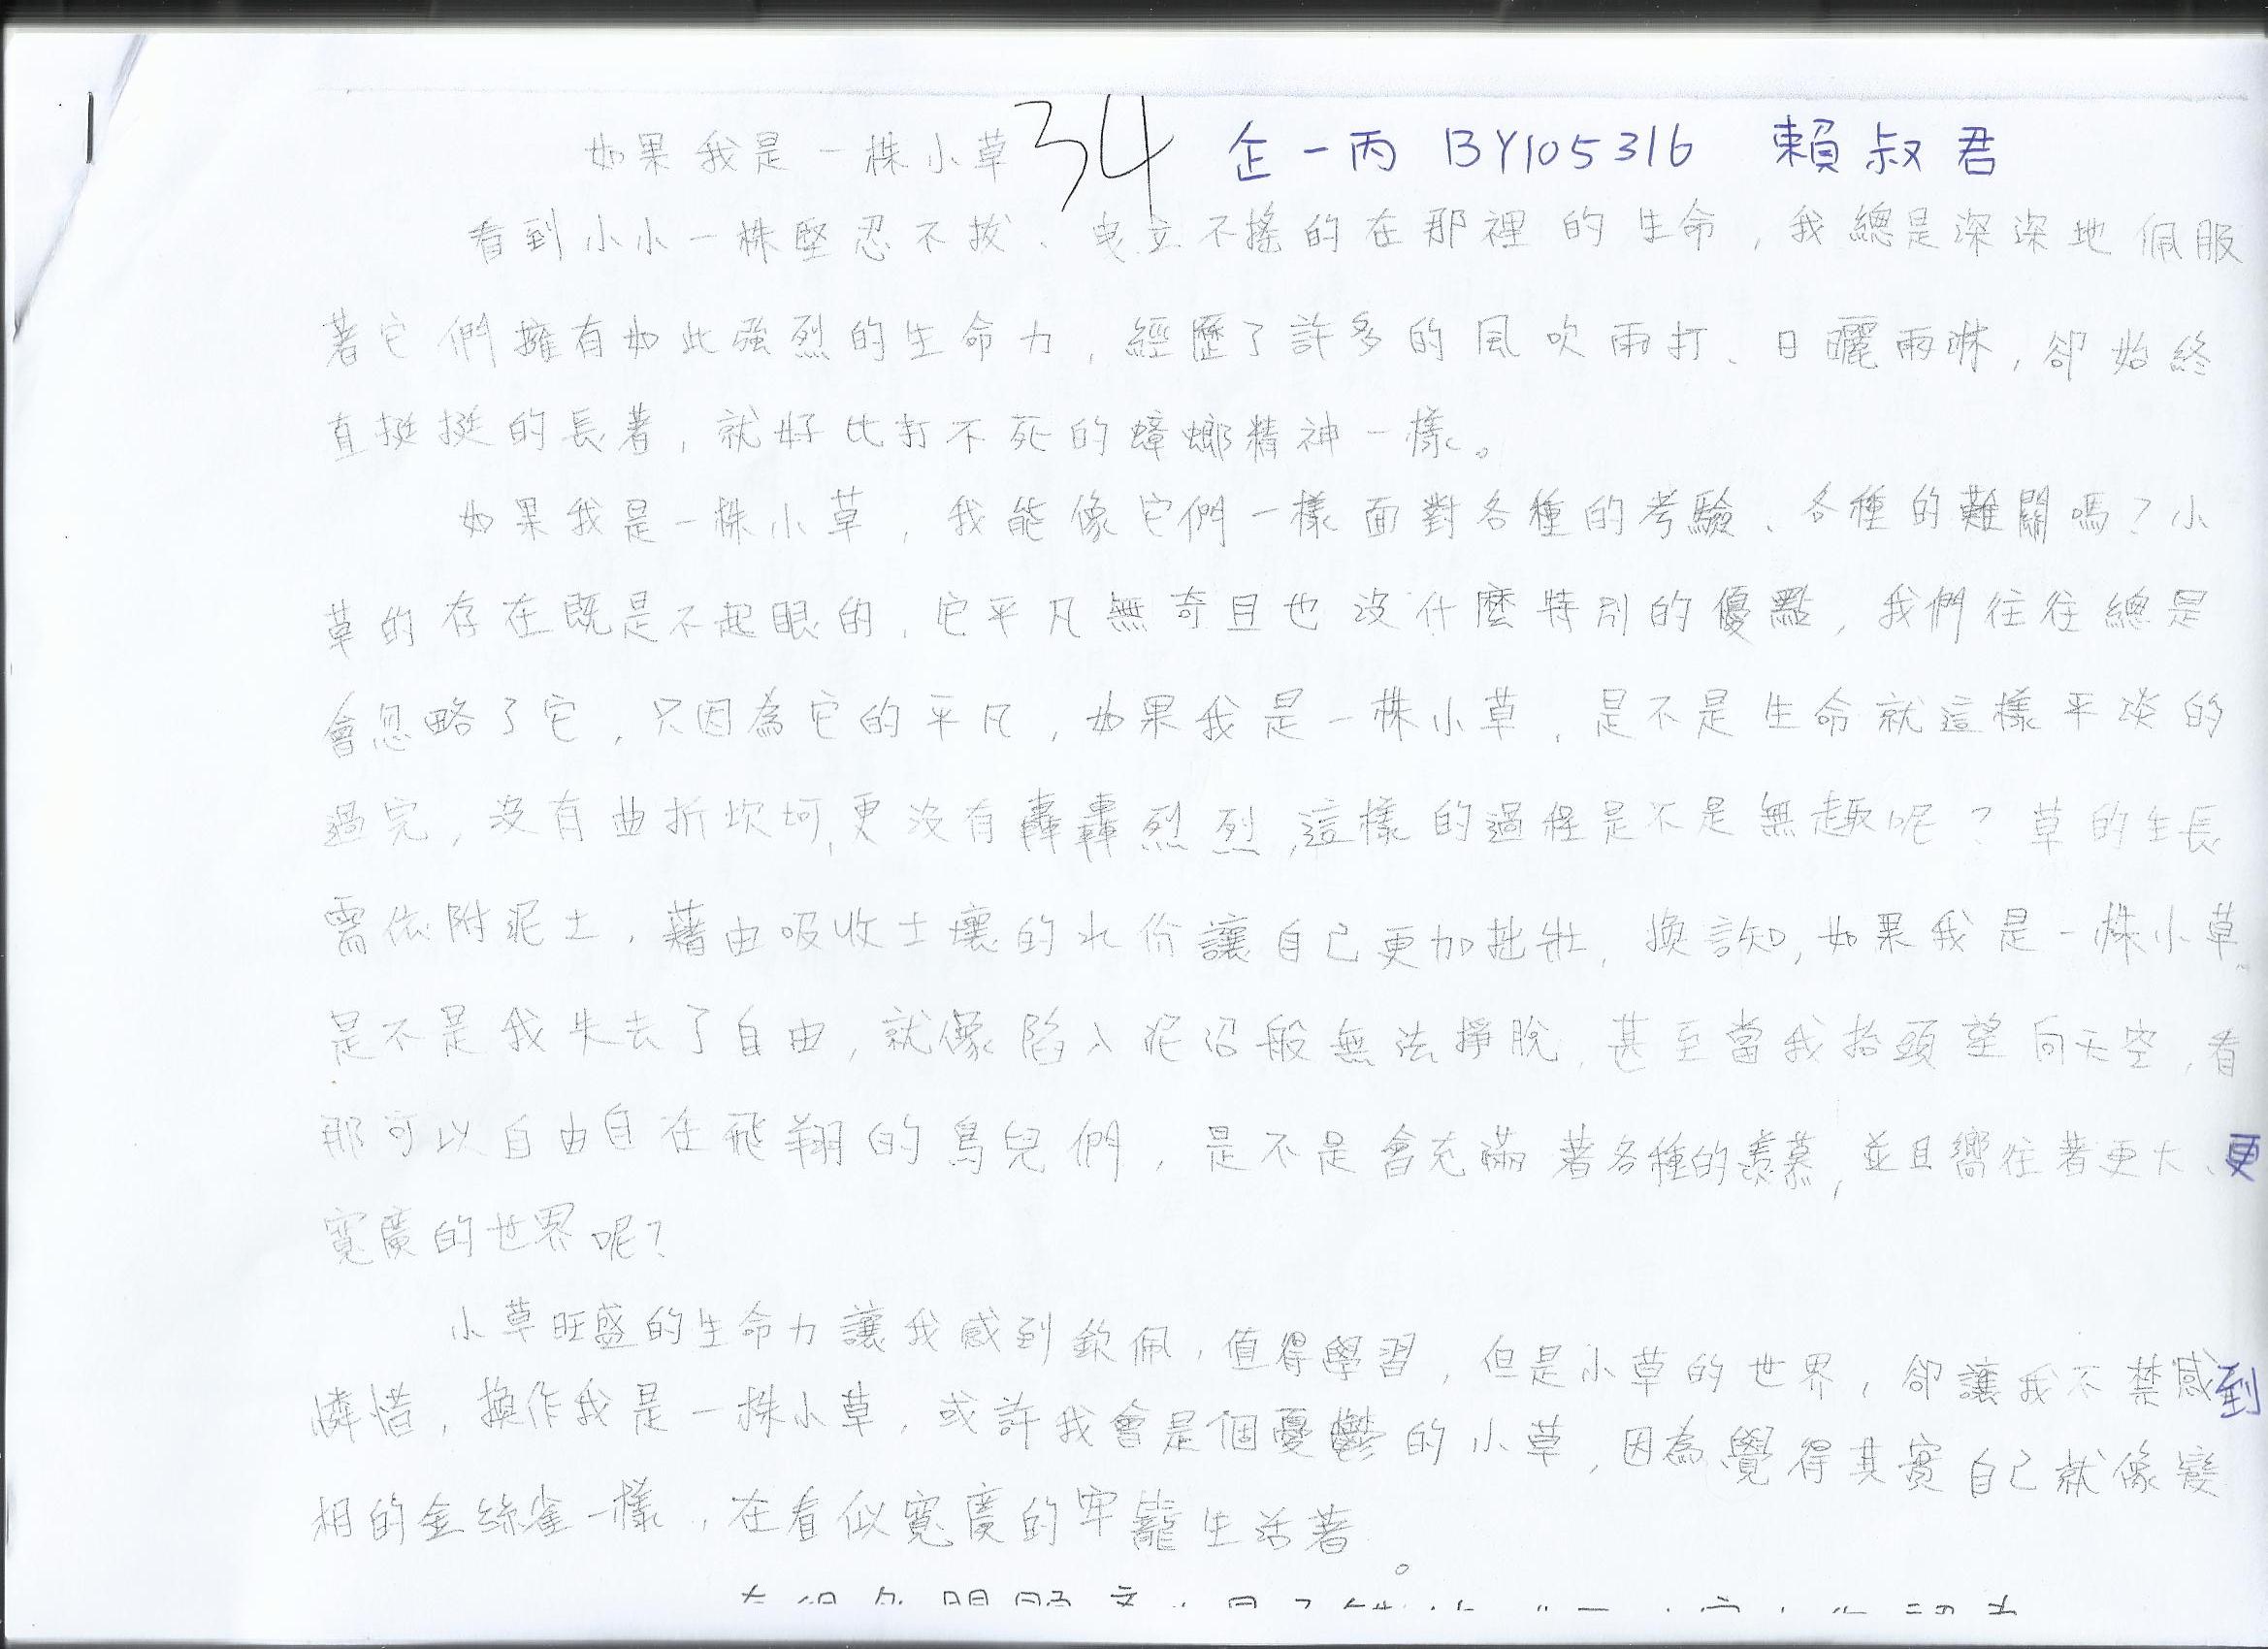 如果我是一株小草 34 企一丙 BY105316 賴叔君
看到小小一株堅忍不拔、曳立不搖的在那裡的生命，我總是深深地佩服
著它們擁有如此強烈的生命力，經歷了許多的風吹雨打、日曬雨淋，卻始終
直挺挺的長著，就好比打不死的蟑螂精神一樣。
如果我是一株小草，我能像它們一樣面對各種的考驗、各種的難關嗎？小
草的存在既是不起眼的，它平凡無奇且也沒什麼特別的優點，我們往往總是
會忽略了它，只因為它的平凡，如果我是一株小草，是不是生命就這樣平淡的
過完，沒有曲折坎坷，更沒有轟轟烈烈，這樣的過程是不是無趣呢？草的生長
需依附泥土，藉由吸收土壤的水份讓自己更加茁壯，換言如果我是一株小草，
是不是我失去了自由，就像陷入泥沼般無法掙脫，甚至當我抬頭望向天空，看
那可以自由自在飛翔的鳥兒們，是不是會充滿著各種的羨慕，並且嚮往著更大、更
寬廣的世界呢？
小草旺盛的生命力讓我感到欽佩，值得學習，但是小草的世界，卻讓我不禁感到
憐惜，換作我是一株小草，或許我會是個憂鬱的小草，因為覺得其實自己就像變
相的金絲雀一樣，在看似寬廣的牢籠生活著。